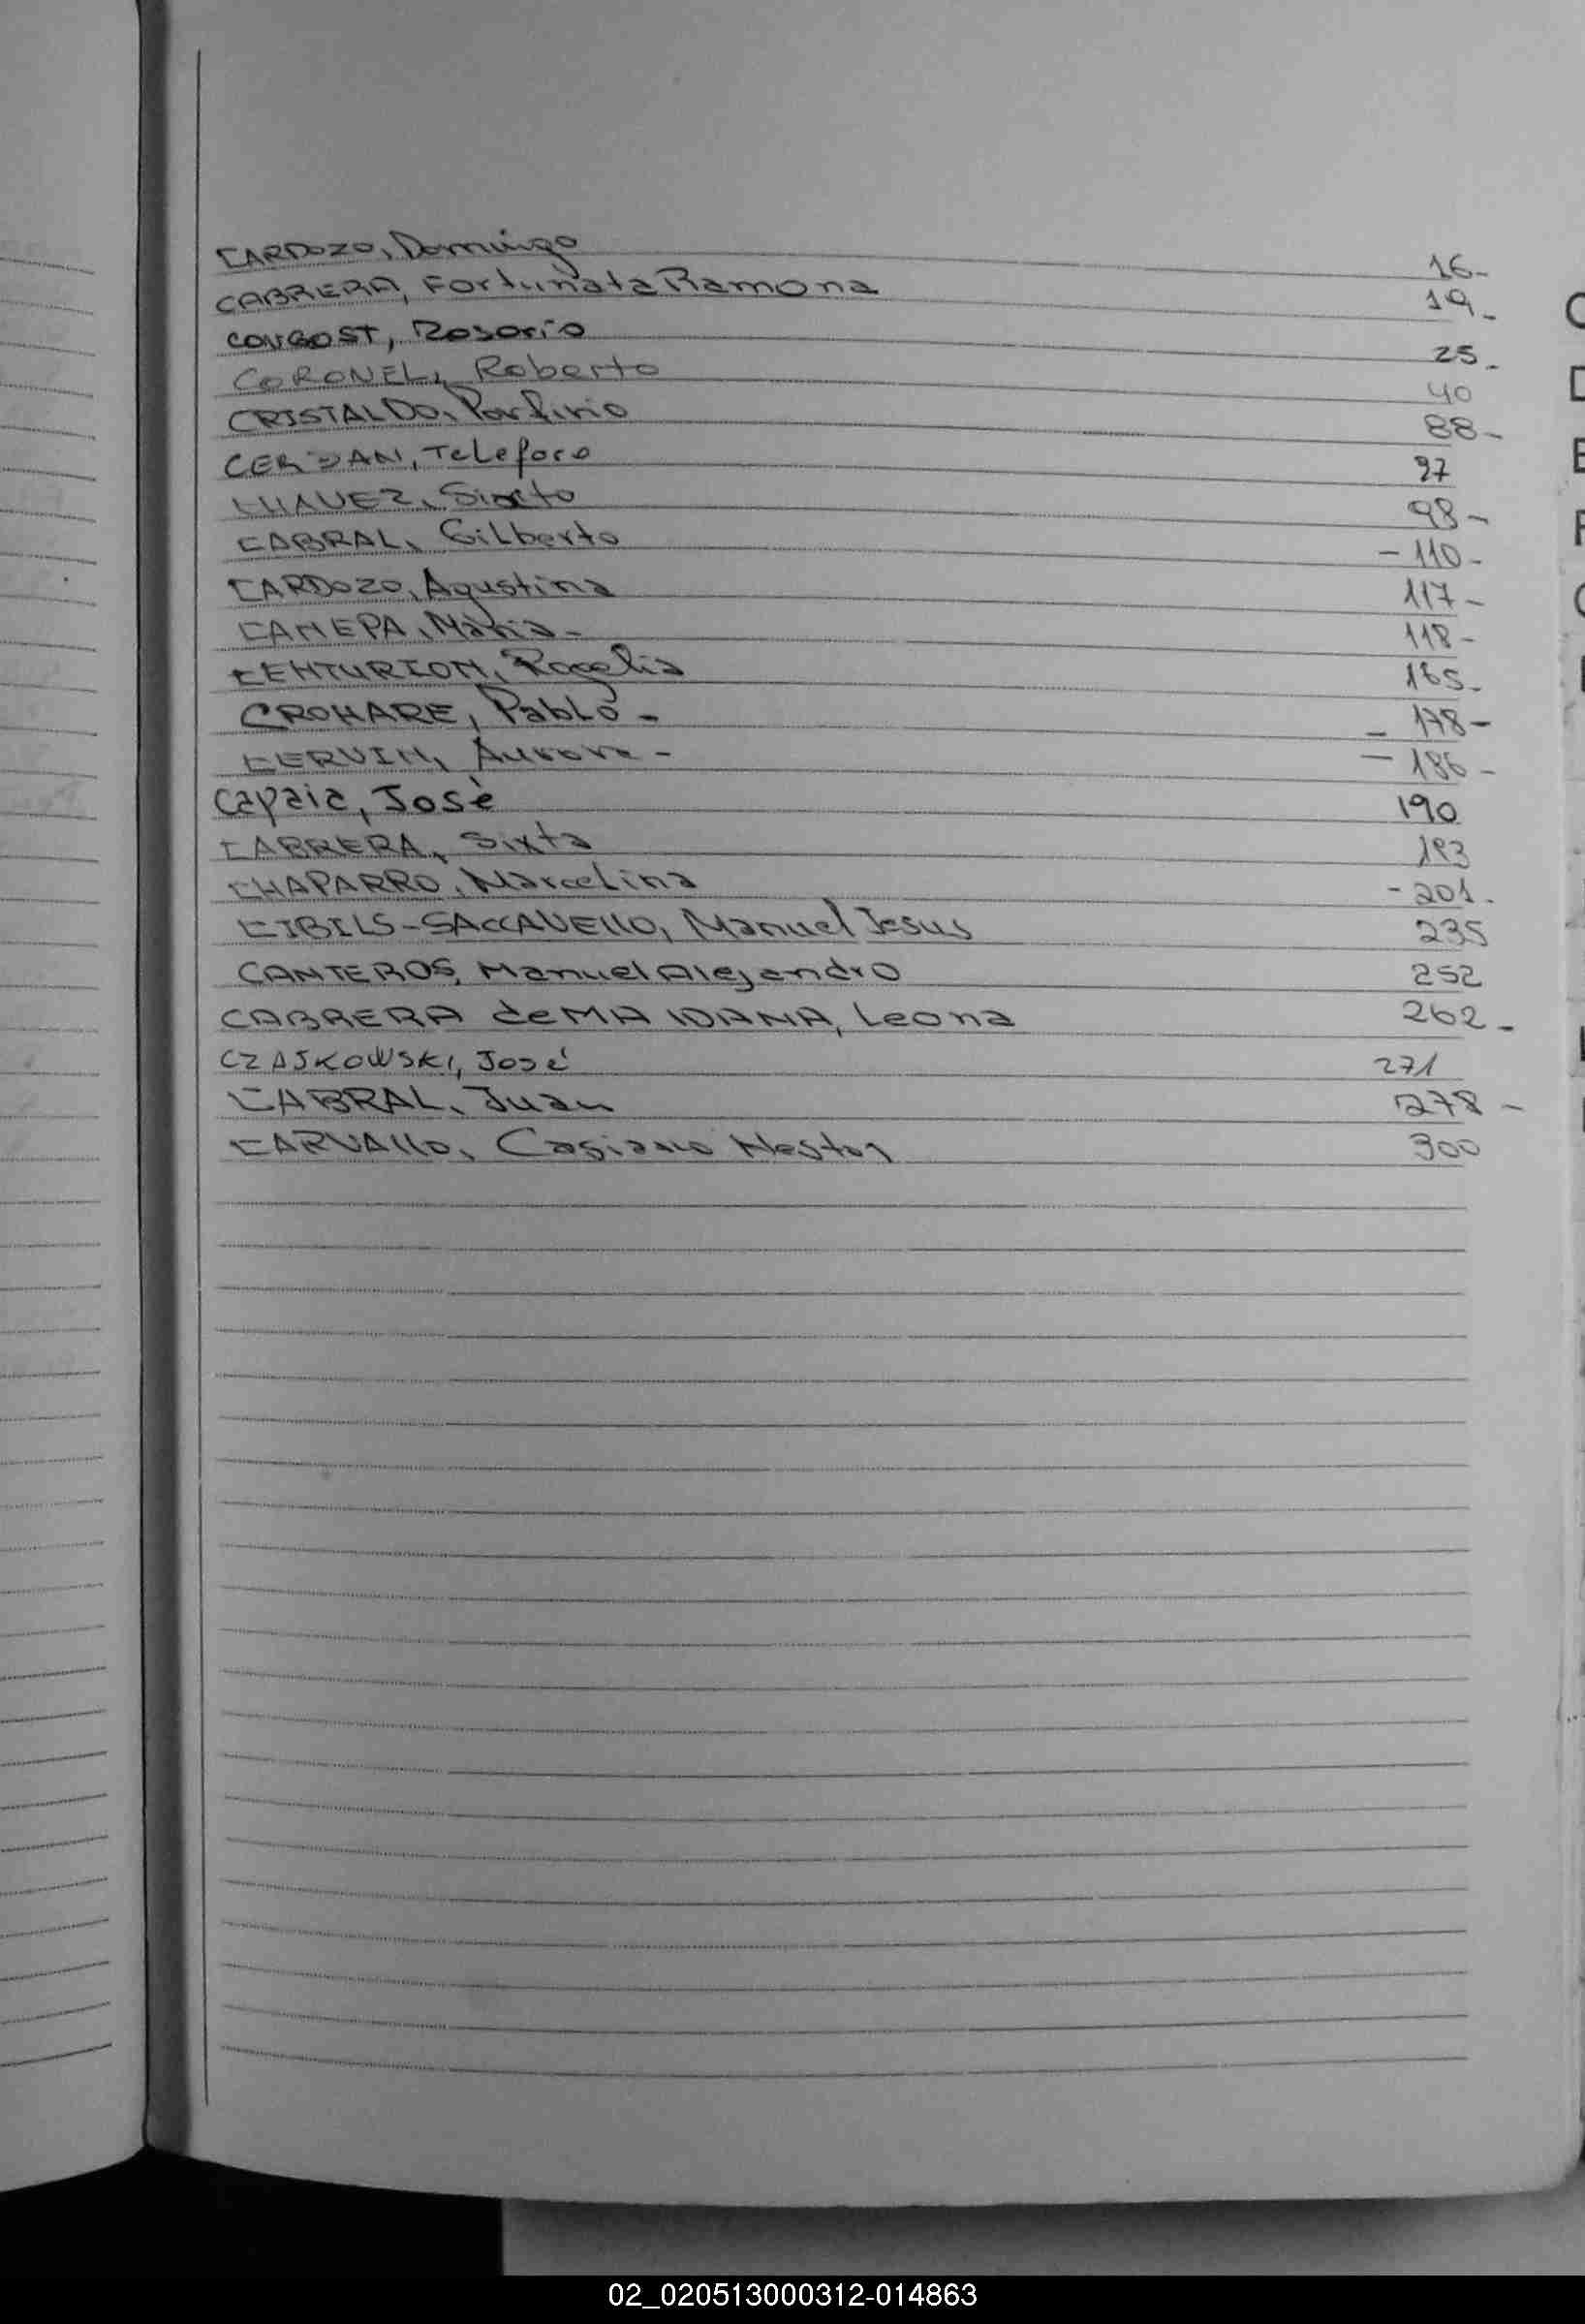 CARDOZO, Domingo 16-
CABRERA, Fortunata Ramona 19-
CONGOST, Rosorio 25-
CORONEL, Roberto 40
CRISTALDO, Porfirio 88-
CERDAN, Teleforo 97
CHAVEZ, Sixto 98-
CABRAL, Gilberto -110-
CARDOZO, Agustina 117-
CANEPA, Maria- 118-
CENTURION, Rogelia 165-
CROHARE, Pablo- - 178-
CERVIN, Aurora- - 186-
Capaia, José 190
CABRERA, Sixta 193
CHAPARRO, Marcelina -201-
CIBILS-SACCAVELLO, Manuel Jesus 235
CANTEROS, Manuel Alejandro 252
CABRERA de MAIDANA, Leona 262-
CZAJKOWSKI, José 271
CABRAL, Juan 278-
CARVALLO, Casiano Nestor 300
02_020513000312-014863